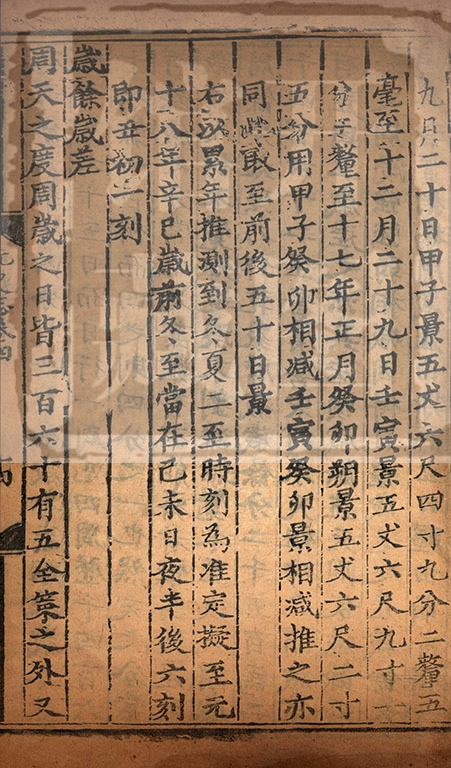 九月二十日甲子景五丈六尺四寸九分二釐五
毫至十二月二十九日壬寅景五丈六尺九寸一
分釐至十七年正月癸卯朔景五丈六尺二寸
五分用甲子癸卯相减壬寅癸卯景相减推之亦
同此取至前後五十日景
右以累年推測到冬夏二至時刻為准定擬至元
十八年辛巳歲前冬至當在己未日夜半後六刻
即丑初一刻
歲餘歲差
周天之度周歲之日皆三百六十有五全策之外又
元史志卷四